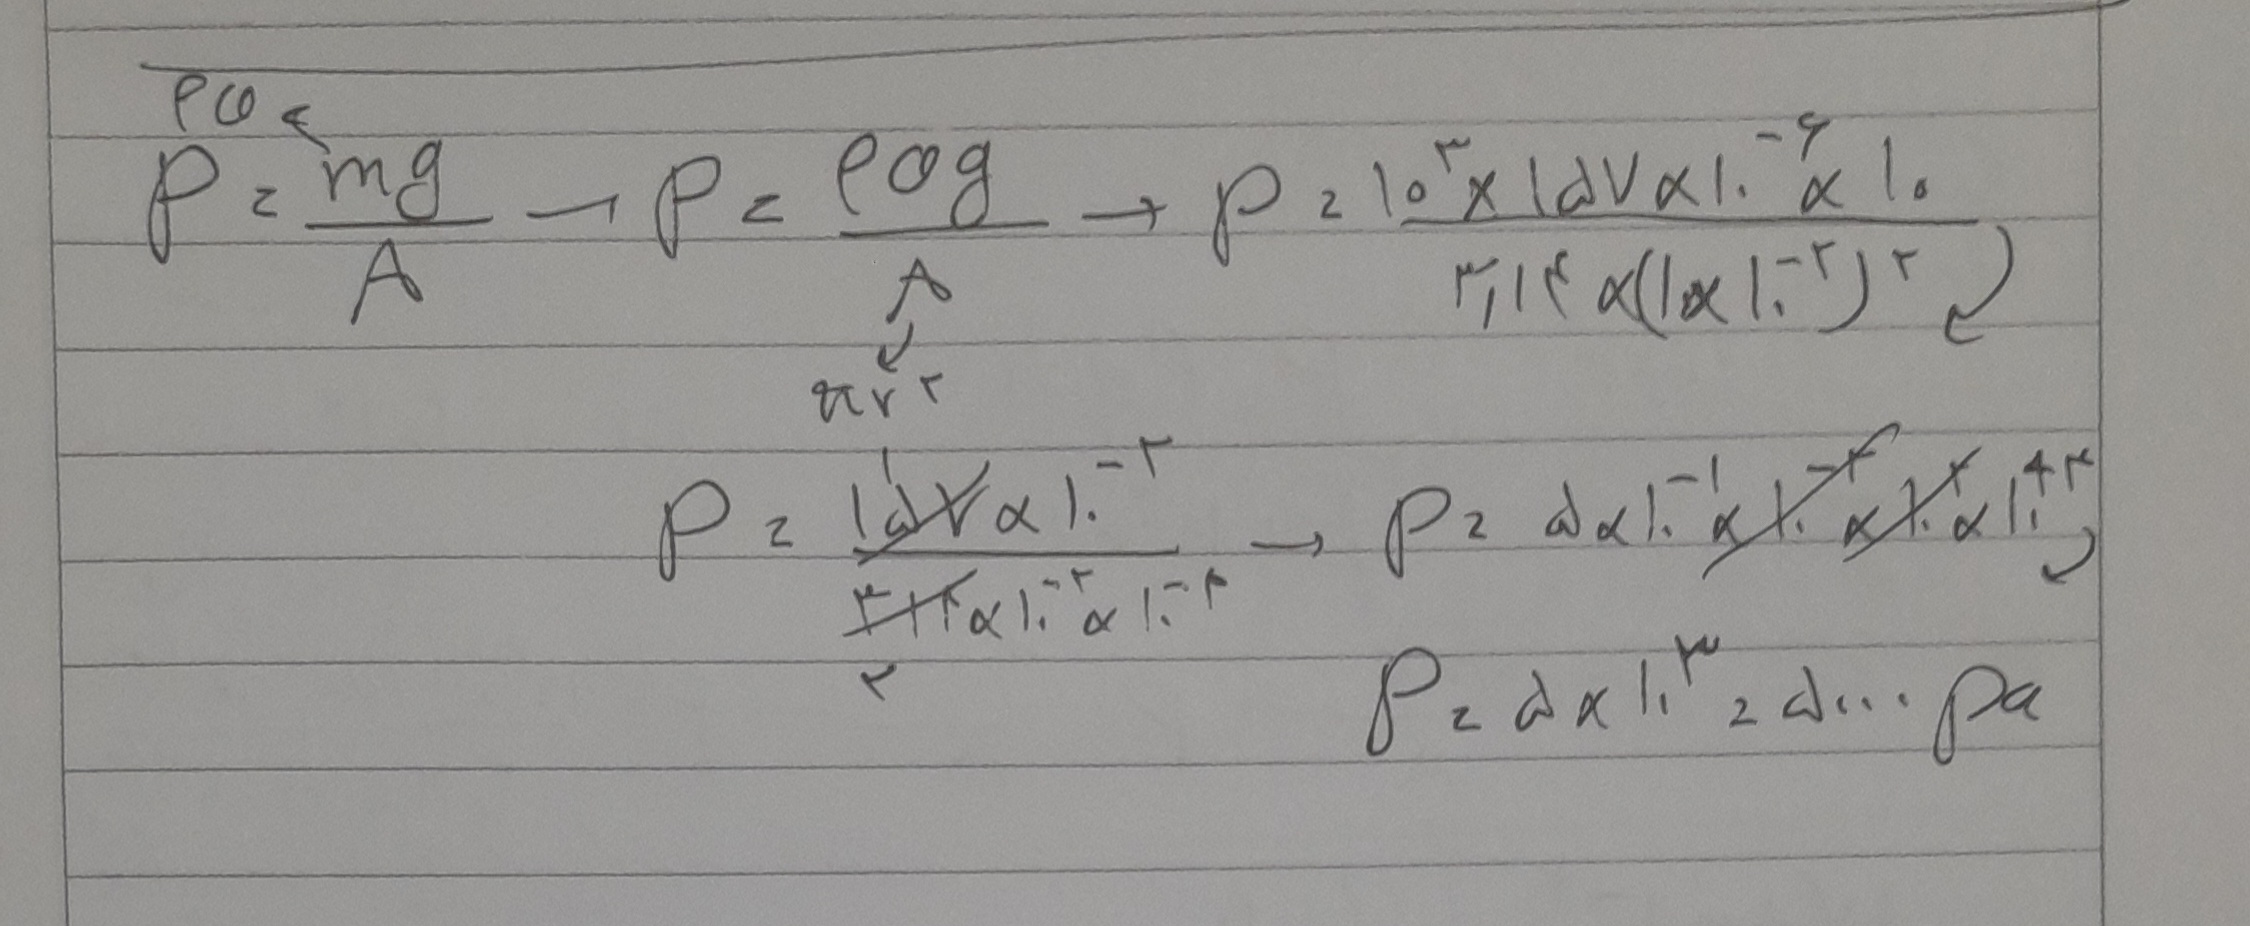 ρv ←
P = mg / A → P = ρvg / A → P = ۱۰^۳ × ۱۵۷ × ۱۰^-۶ × ۱۰ / ۳٫۱۴ × (۱ × ۱۰^-۲)^۲
πr^۲
P = ۱۵۷ × ۱۰^-۲ / ۳٫۱۴ × ۱۰^-۲ × ۱۰^-۲ → P = ۵ × ۱۰^-۱ × ۱۰^-۲ × ۱۰^۲ × ۱۰^۴
۲
P = ۵ × ۱۰^۳ = ۵۰۰۰ pa